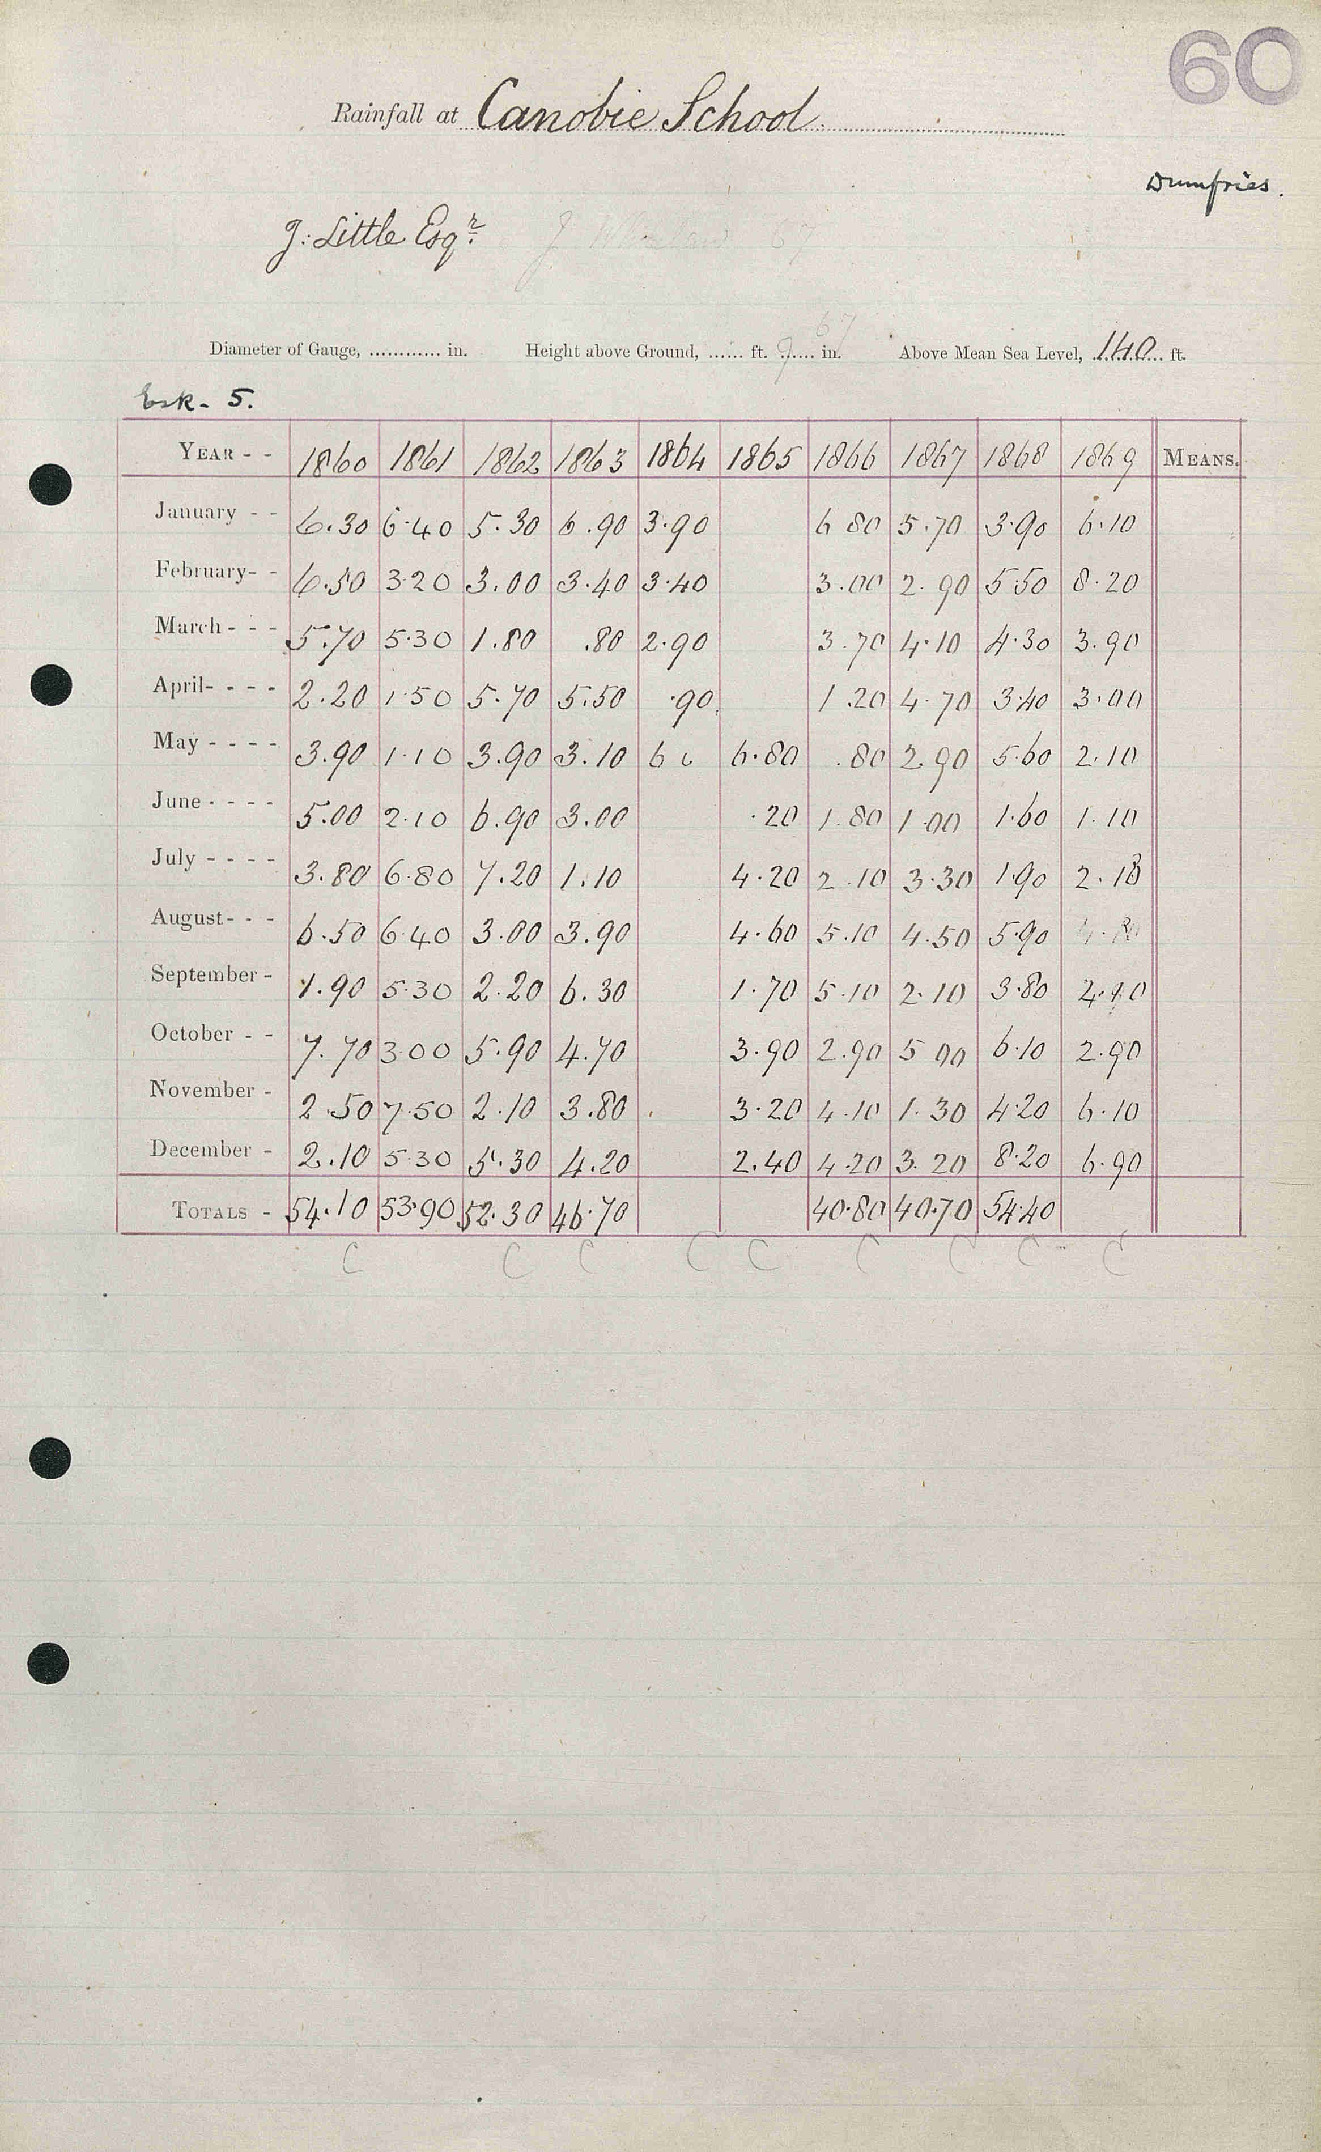 60
Rainfall at Canobie School.
Dumfries.
J. Little Esqr.
Diameter of Gauge, ............ in. Height above Ground, ...... ft. 9 in. Above Mean Sea Level, 140 ft.
67
Esk - 5.
YEAR - - 1860 1861 1862 1863 1864 1865 1866 1867 1868 1869 MEANS.
January - - 6.30 6.40 5.30 6.90 3.90 6 80 5.70 3.90 6.10
February- - 6.50 3.20 3.00 3.40 3.40 3.00 2.90 5.50 8.20
March - - - 5.70 5.30 1.80 .80 2.90 3.70 4.10 4.30 3.90
April- - - - 2.20 1.50 5.70 5.50 .90 1.20 4.70 3.40 3.00
May - - - - 3.90 1.10 3.90 3.10 6.80 .80 2.90 5.60 2.10
June - - - - 5.00 2.10 6.90 3.00 .20 1.80 1.00 1.60 1.10
July - - - - 3.80 6.80 7.20 1.10 4.20 2.10 3.30 1.90
August- - - 6.50 6.40 3.00 3.90 4.60 5.10 4.50 5.90
September - 1.90 5.30 2.20 6.30 1.70 5.10 2.10 3.80
October - - 7.70 3.00 5.90 4.70 3.90 2.90 5 00 6.10 2.90
November - 2.50 7.50 2.10 3.80 3.20 4.10 1.30 4.20 6.10
December - 2.10 5.30 5.30 4.20 2.40 4.20 3.20 8.20 6.90
TOTALS - 54.10 53.90 52.30 46.70 40.80 40.70 54.40
C C C C C C C C C